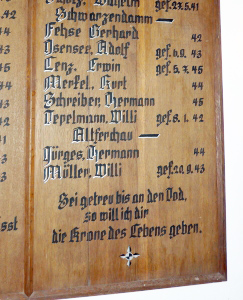 Wilhelm gef. 23.5.41
Schwarzendamm —
Fehse Gerhard 42
Isensee, Adolf gef. 6.9. 43
Cenz. Erwin gef. 5.7. 45
Merkel, Kurt 44
Schreiber, Hermann 45
Tepelmann, Willi gef. 8.1. 42
Altferchau —
Jürges, Hermann 44
Müller, Willi gef. 20.9. 43
Sei getreu bis an den Tod,
so will ich dir
die Krone des Lebens geben.